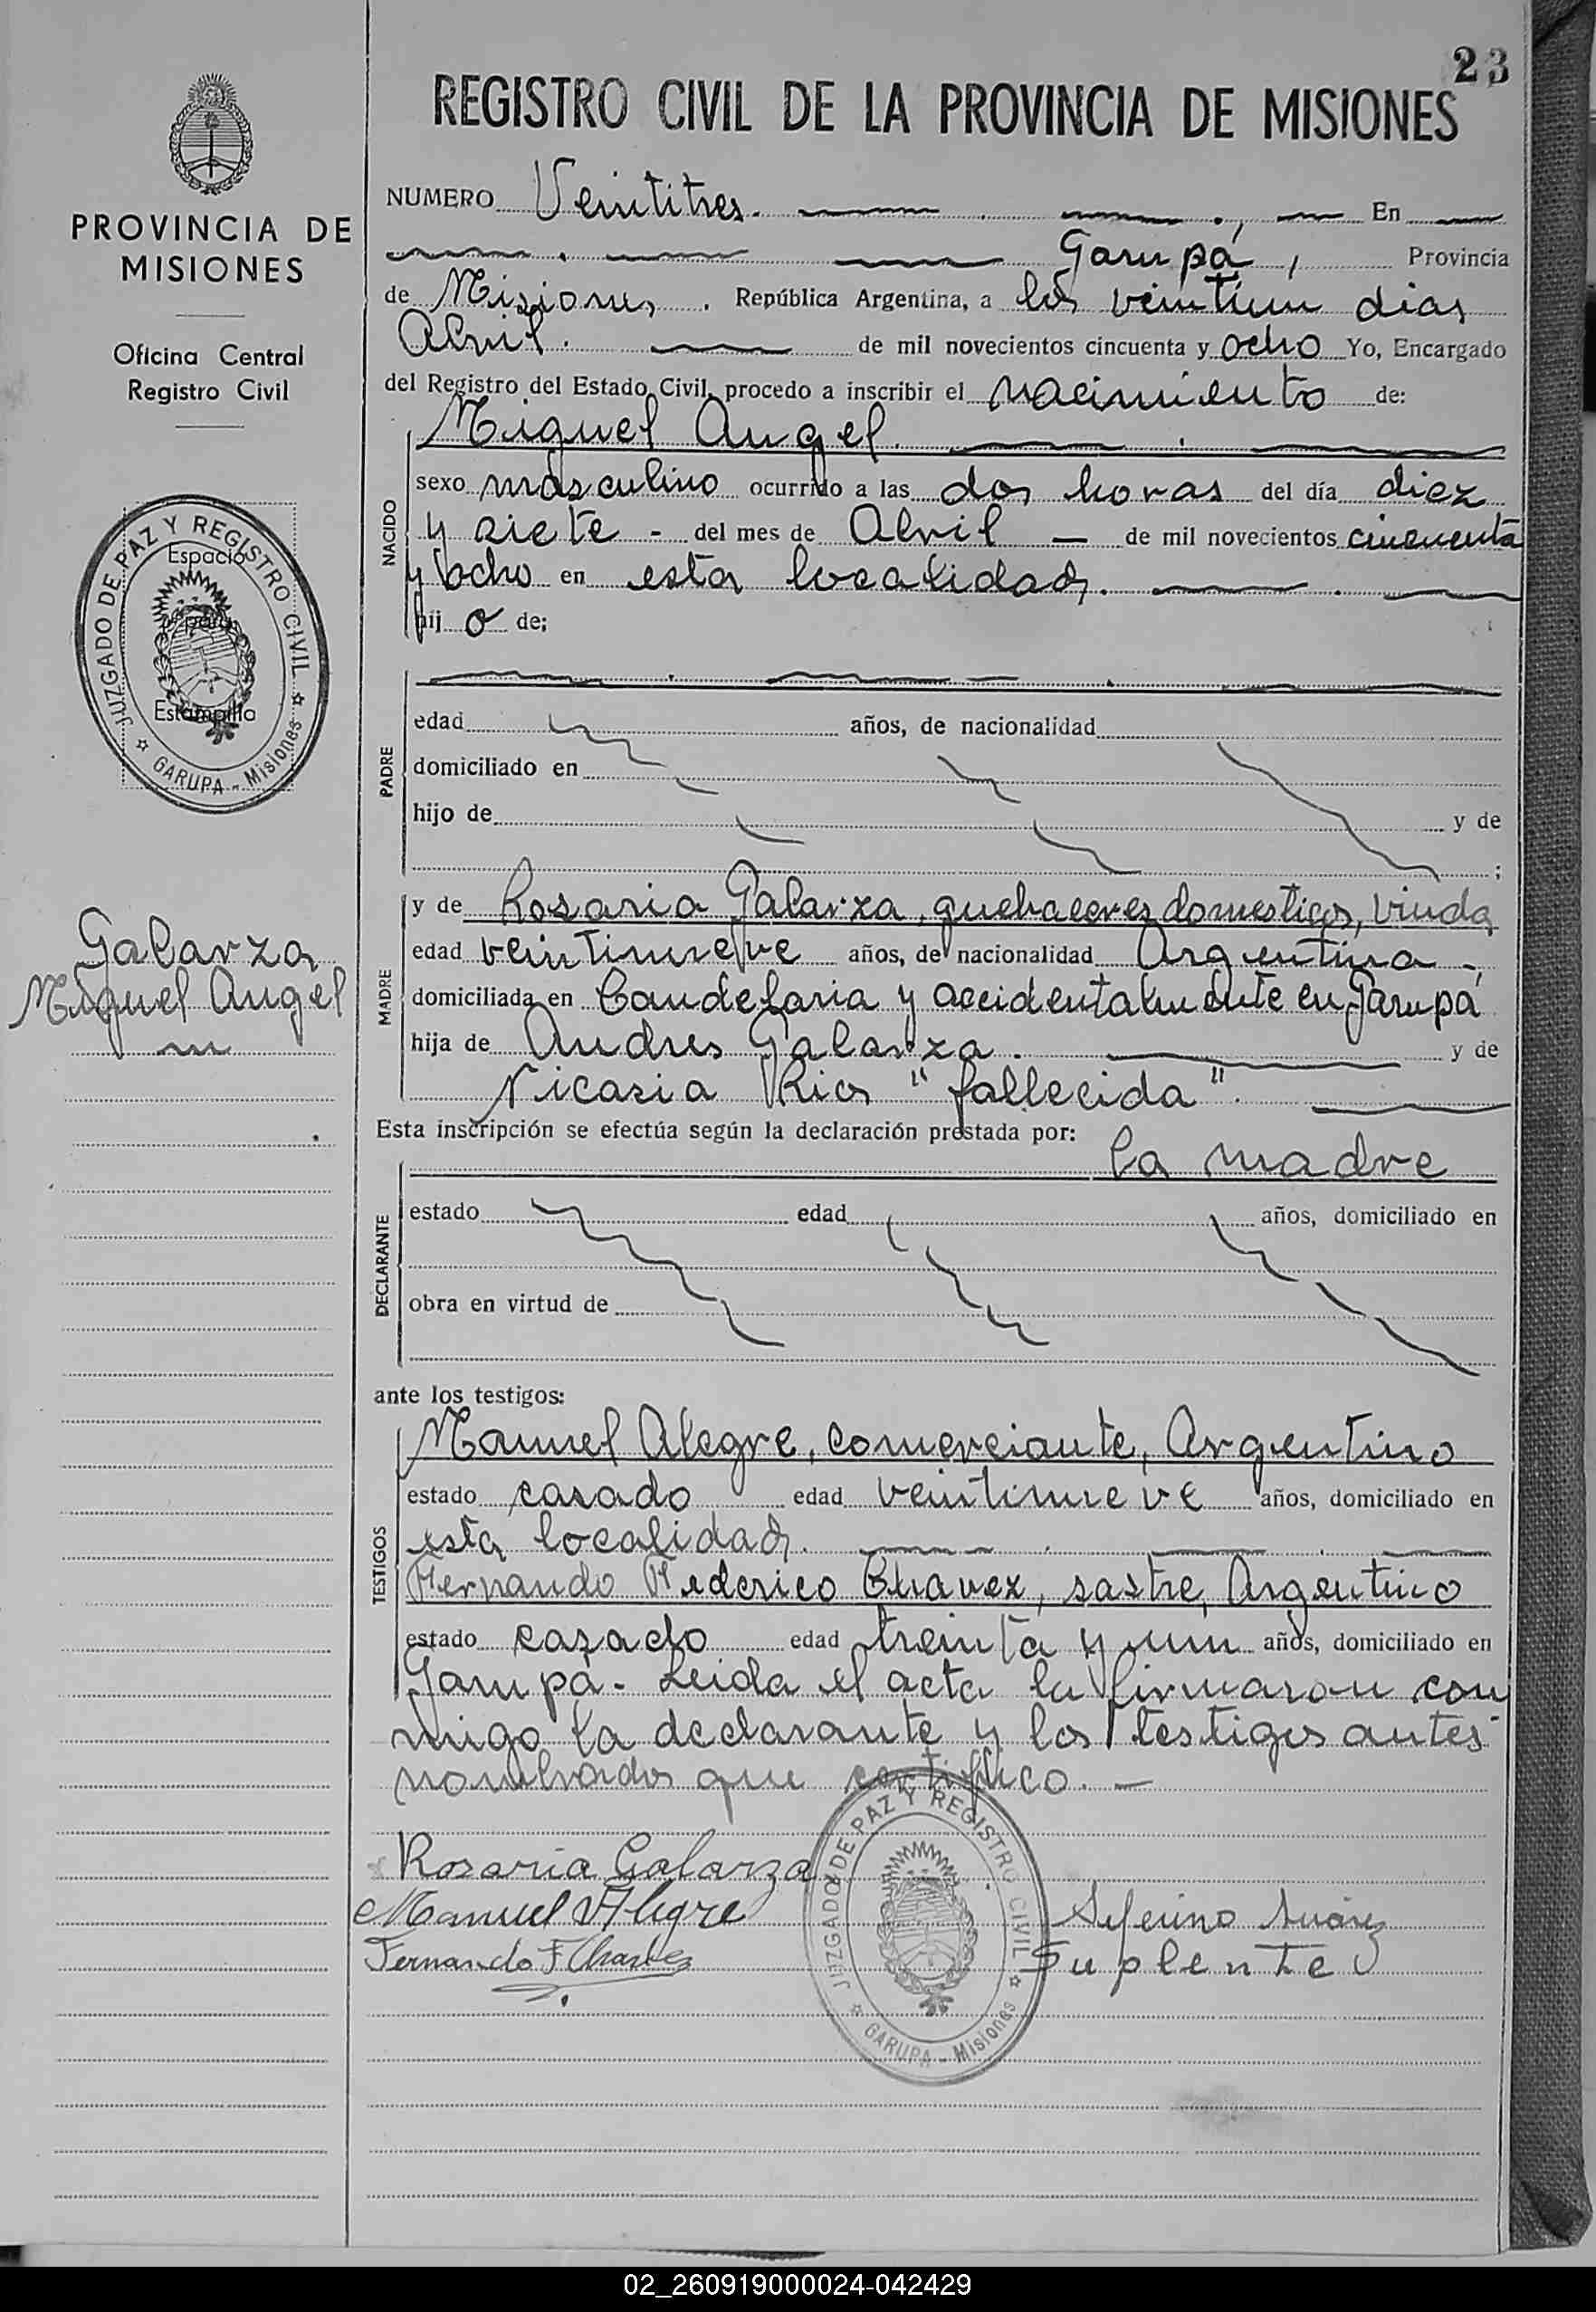 23
REGISTRO CIVIL DE LA PROVINCIA DE MISIONES
PROVINCIA DE
MISIONES
Oficina Central
Registro Civil
JUZGADO DE PAZ Y REGISTRO CIVIL
Espacio
para
Estampilla
GARUPA - Misiones
Galarza
Miguel Angel
NUMERO Veintitres. En
Garupá, Provincia
de Misiones. República Argentina, a los veintiun dias
Abril. de mil novecientos cincuenta y ocho Yo, Encargado
del Registro del Estado Civil, procedo a inscribir el nacimiento de:
Miguel Angel.
NACIDO
sexo masculino ocurrido a las dos horas del día diez
y siete - del mes de Abril — de mil novecientos cincuenta
y ocho en esta localidad.
hij o de;
PADRE
edad años, de nacionalidad
domiciliado en
hijo de y de
;
MADRE
y de Rosaria Galarza, quehaceres domesticos, viuda
edad veintinueve años, de nacionalidad Argentina -,
domiciliada en Candelaria y accidentalmente en Garupá
hija de Andres Galarza. y de
Nicasia Rios "fallecida".
Esta inscripción se efectúa según la declaración prestada por:
la madre
DECLARANTE
estado edad años, domiciliado en
obra en virtud de
ante los testigos:
TESTIGOS
Manuel Alegre, comerciante, Argentino
estado casado edad veintinueve años, domiciliado en
esta localidad.
Fernando Federico Chavez, sastre, Argentino
estado casado edad treinta y un años, domiciliado en
Garupá. Leida el acta la firmaron con
migo la declarante y los testigos antes
nombrados que certifico. —
Rosaria Galarza
Manuel Alegre
Fernando F Chavez
JUZGADO DE PAZ Y REGISTRO CIVIL
GARUPA - Misiones
Seferino Suárez
Suplente
02_260919000024-042429